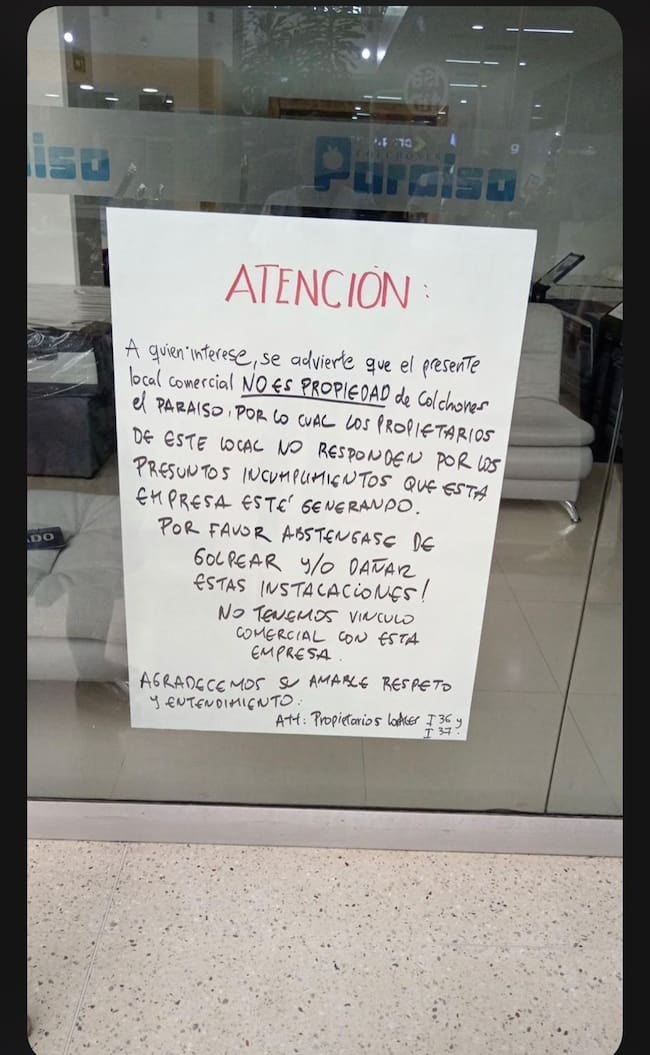 aiso
COLCHONES
Paraiso
ATENCIÓN:
A quien interese, se advierte que el presente
local comercial NO ES PROPIEDAD de Colchones
el PARAISO, POR LO CUAL LOS PROPIETARIOS
DE ESTE LOCAL NO RESPONDEN POR LOS
PRESUNTOS INCUMPLIMIENTOS QUE ESTA
EMPRESA ESTÉ GENERANDO.
POR FAVOR ABSTENGASE DE
GOLPEAR Y/O DAÑAR
ESTAS INSTALACIONES!
NO TENEMOS VINCULO
COMERCIAL CON ESTA
EMPRESA.
AGRADECEMOS SU AMABLE RESPETO
Y ENTENDIMIENTO.
ATT: Propietarios locales I 36 y
I 37.
ADO